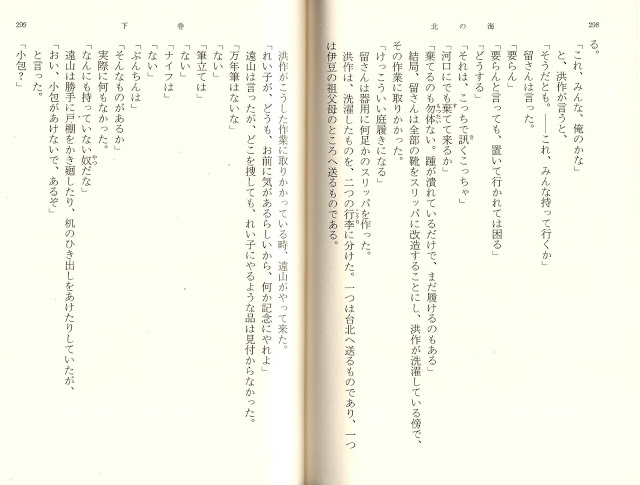 298
北の海
る。
「これ、みんな、俺のかな」
と、洪作が言うと、
「そうだとも。――これ、みんな持って行くか」
留さんは言った。
「要らん」
「要らんと言っても、置いて行かれては困る」
「どうする」
「それは、こっちで訊くこっちゃ」
「河口にでも棄てて来るか」
「棄てるのも勿体ない。踵が潰れているだけで、まだ履けるのもある」
結局、留さんは全部の靴をスリッパに改造することにし、洪作が洗濯している傍で、
その作業に取りかかった。
「けっこういい庭履きになる」
留さんは器用に何足かのスリッパを作った。
洪作は、洗濯したものを、二つの行李に分けた。一つは台北へ送るものであり、一つ
は伊豆の祖父母のところへ送るものである。
299
下巻
洪作がこうした作業に取りかかっている時、遠山がやって来た。
「れい子が、どうも、お前に気があるらしいから、何か記念にやれよ」
遠山は言ったが、どこを捜しても、れい子にやるような品は見付からなかった。
「万年筆はないな」
「ない」
「筆立ては」
「ない」
「ナイフは」
「ない」
「ぶんちんは」
「そんなものがあるか」
実際に何もなかった。
「なんにも持っていない奴だな」
遠山は勝手に戸棚をかき廻したり、机のひき出しをあけたりしていたが、
「おい、小包があけないで、あるぞ」
と言った。
「小包？」